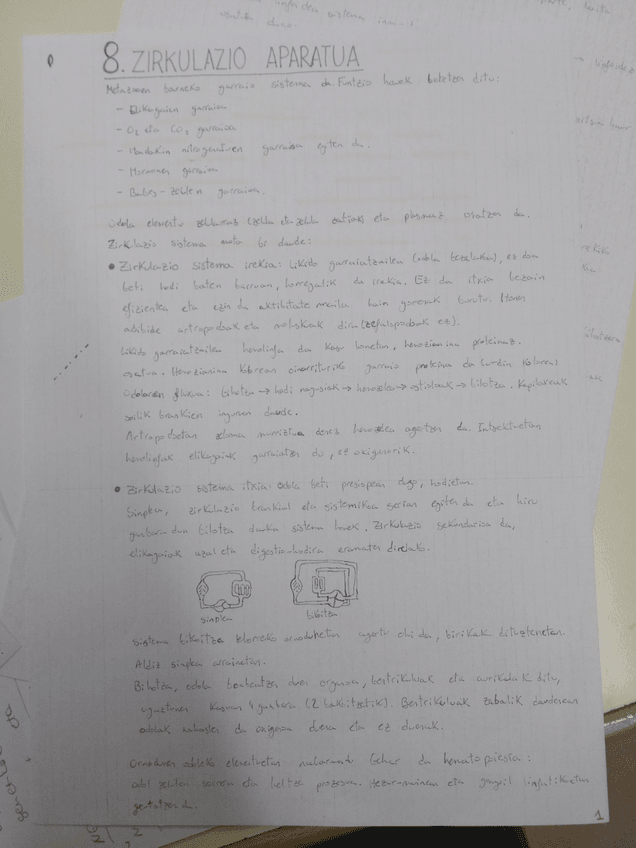 8. ZIRKULAZIO APARATUA
Metazooen barneko garraio sistema da. Funtzio hauek betetzen ditu:
- Elikagaien garraioa
- O2 eta CO2 garraioa
- Hondakin nitrogenatuen garraioa egiten da.
- Hormonen garraioa
- Babes-zelulen garraioa.
Odola elementu zelularrez (zelula eta zelula zatiak) eta plasmaz osatzen da.
Zirkulazio sistema mota bi daude:
• Zirkulazio sistema irekia: Likido garraiatzailea (odola bezalakoa), ez doa
beti hodi baten barruan, horregatik da irekia. Ez da itxia bezain
efizientea eta ezin da aktibitate maila hain gorenak burutu. Honen
adibide artropodoak eta moluskoak dira (zefalopodoak ez).
Likido garraiatzailea hemolinfa da kasu honetan, hemozianina proteinaz
osatua. Hemozianina kobrean oinarrituriko garraio proteina da
Odolaren fluxua: bihotza → hodi nagusiak → hemozela → ostioluak → bihotza. Kapilareak
soilik brankien inguruan daude.
Artropodoetan zeloma murriztua denez hemozela agertzen da. Intsektuetan
hemolinfak elikagaiak garraiatzen ditu, ez oxigenorik.
• Zirkulazio sistema itxia: odola beti presiopean dago, hodietan.
Sinplea, zirkulazio brankial eta sistemikoa serian egiten da eta hiru
ganbara duen bihotza dauka sistema honek. Zirkulazio sekundarioa da,
elikagaiak azal eta digestio-hodira eramaten direlako.
sinplea
bikoitza
Sistema bikoitza lehorreko ornodunetan agertu ohi da, birikak dituztenetan.
Aldiz sinplea arrainetan.
Bihotza, odola bonbatzen duen organoa, bentrikuluak eta aurikulak ditu,
ugaztunen kasuan 4 ganbara (2 bakoitzetik). Bentrikuluak zabalik daudenean
odolak nahasten da oxigenoa duena eta ez duenak.
Ornodunen odoleko elementuetan nabarmendu behar da hematopoiesia:
odol zelulen sorrera eta heltze prozesua. Hezur-muinean eta gongoil linfatikoetan
gertatzen da.
1